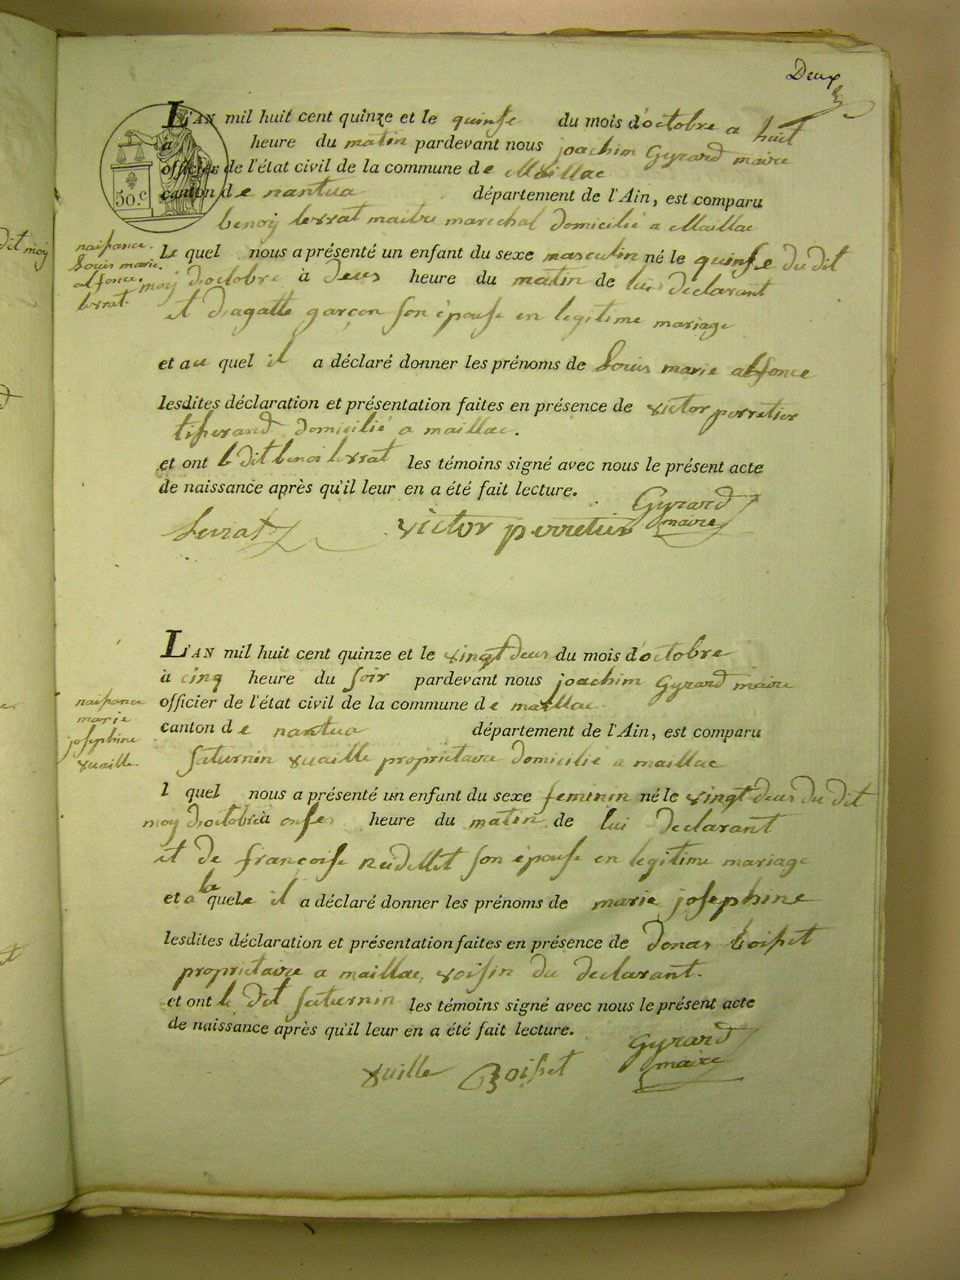 Deux
L'AN mil huit cent quinze et le quinse du mois d'octobre a huit
a heure du matin pardevant nous joachim Gyrard maire
officier de l'état civil de la commune de Maillac
canton de nantua département de l'Ain, est comparu
50.c
benoy levrat maitre marechal domicilié a Maillac
dit moy
naissance
Louis marie
alfonce
levrat.
Le quel nous a présenté un enfant du sexe masculin né le quinse du dit
moy d'octobre à deus heure du matin de lui declarant
et d'agatte garçon son épouse en legitime mariage
et au quel il a déclaré donner les prénoms de Louis marie alfonce
lesdites déclaration et présentation faites en présence de victor perretier
tiserand domicilié a maillac.
et ont le dit benoi levrat les témoins signé avec nous le présent acte
de naissance après qu'il leur en a été fait lecture.
Gyrard
maire
Levrat
victor perretier
L'AN mil huit cent quinze et le vingt deus du mois d'octobre
à cinq heure du soir pardevant nous joachim Gyrard maire
officier de l'état civil de la commune de maillac
canton de nantua département de l'Ain, est comparu
naissance
marie
josephine
vuaille.
saturnin vuaille proprietaire domicilié a maillac
l quel nous a présenté un enfant du sexe feminin né le vingt deus du dit
moy d'octobre à onse heure du matin de lui declarant
et de françoise reidellet son épouse en legitime mariage
et a la quele il a déclaré donner les prénoms de marie josephine
lesdites déclaration et présentation faites en présence de donas boisset
proprietaire a maillac, voisin du declarant.
et ont le dit saturnin les témoins signé avec nous le présent acte
de naissance après qu'il leur en a été fait lecture.
Gyrard
maire
vuille Boisset